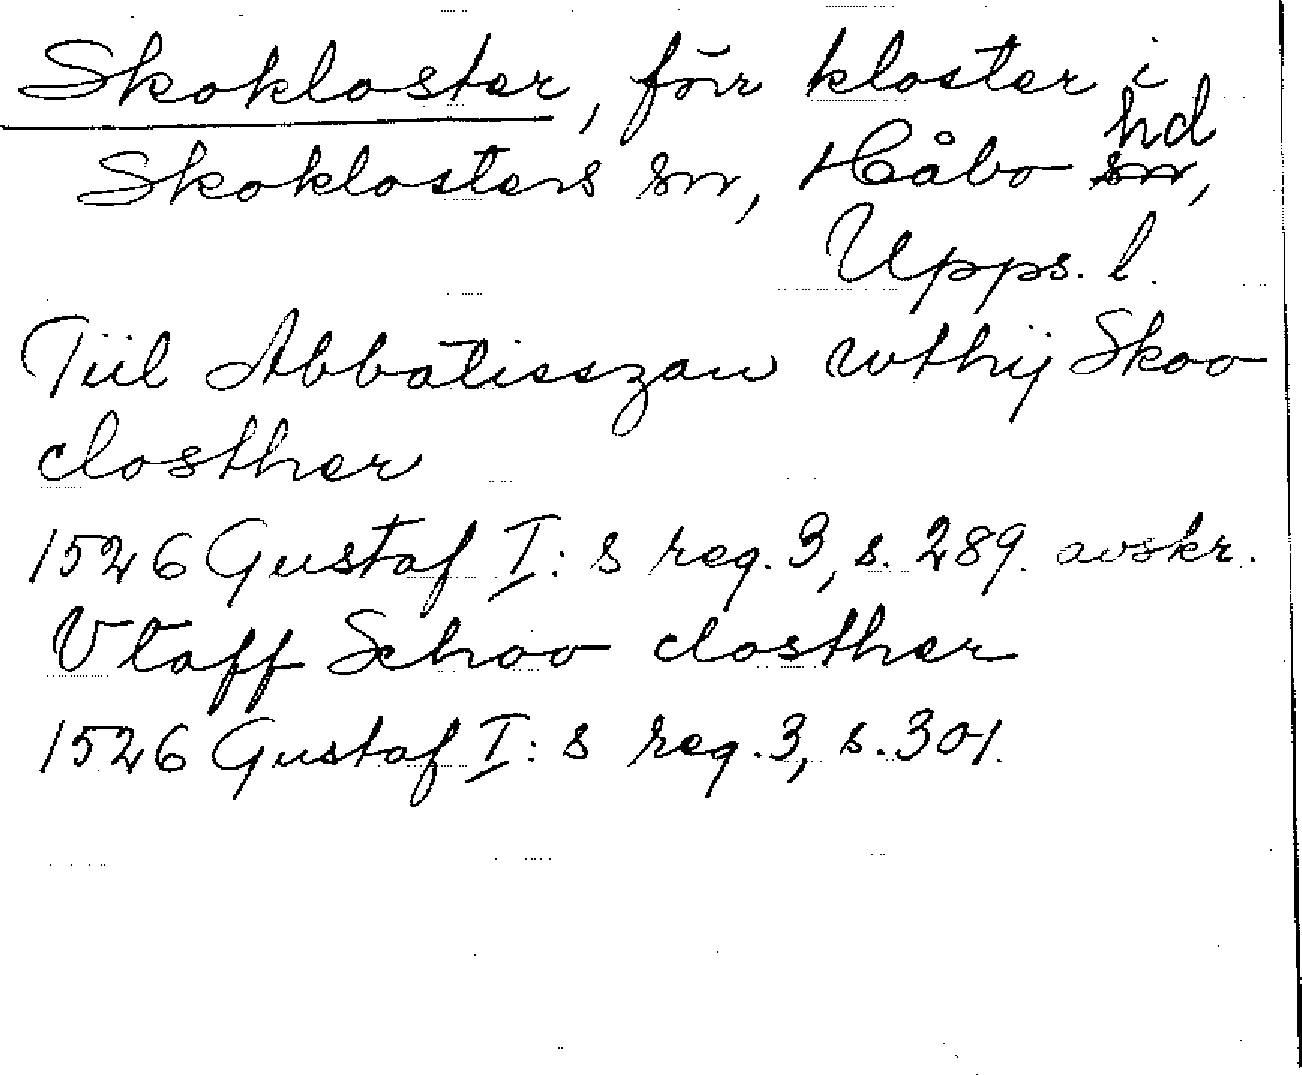 Skokloster, förr kloster i
Skoklosters sn, Håbo hd,
Upps. l.
Tiil Abbatisszan wthij Skoo
closther
1526 Gustaf I:s reg. 3, s. 289. avskr.
Vtaff Schoo closther
1526 Gustaf I:s reg. 3, s. 301.